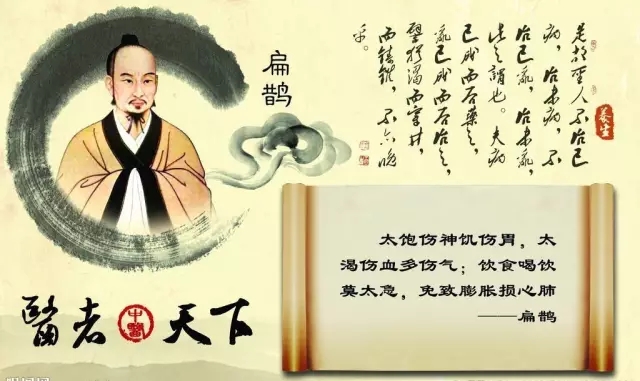 扁鹊
是故聖人不治已
病,治未病,不
治已亂,治未亂,
此之謂也。夫病
已成而后藥之,
亂已成而后治之,
譬犹渴而穿井,
不亦晚
乎。
養生
太饱伤神饥伤胃,太
渴伤血多伤气;饮食喝饮
莫太急,免致膨胀损心肺
——扁鹊
醫者中醫天下